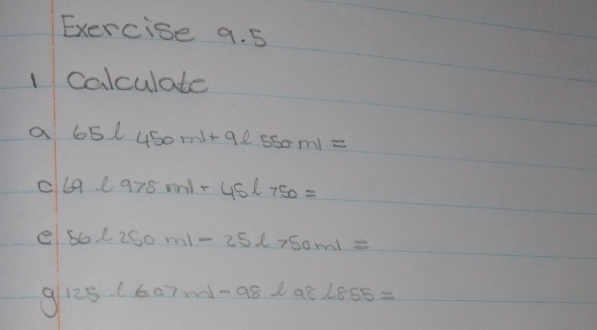 Exercise 9.5
1 Calculate
a 65 l 450 ml + 9 l 550 ml =
c 69 l 975 ml + 45 l 750 =
e 56 l 250 ml - 25 l 750 ml =
g 125 l 607 ml - 98 l 98 l 855 =